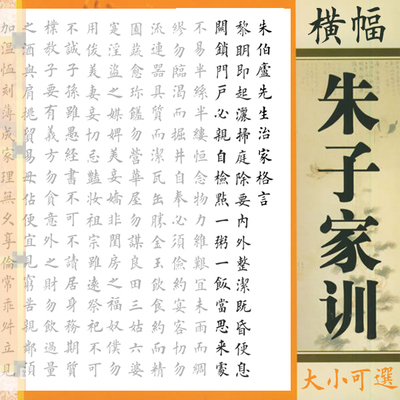 橫幅
朱子家训
大小可選
朱伯廬先生治家格言
黎明即起灑掃庭除要內外整潔既昏便息
關鎖門戶必親自檢點一粥一飯當思來處
不易半絲半縷恒念物力維艱宜未雨而綢
繆勿臨渴而掘井自奉必須儉約宴客切勿
流連器具質而潔瓦缶勝金玉飲食約而精
園蔬愈珍饈勿營華屋勿謀良田三姑六婆
實淫盜之媒婢美妾嬌非閨房之福奴僕勿
用俊美妻妾切忌艷妝祖宗雖遠祭祀不可
不誠子孫雖愚經書不可不讀居身務期質
樸教子要有義方勿貪意外之財勿飲過量
之酒與肩挑貿易毋佔便宜見窮苦親鄰須
加溫恤刻薄成家理無久享倫常乖舛立見